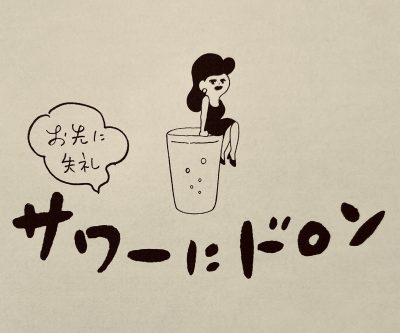 お先に
失礼
サワーにドロン